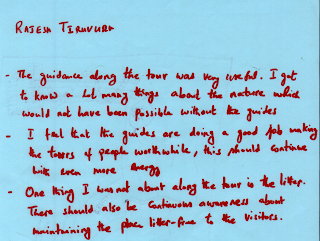 RAJESH TIRUVURU
- The guidance along the tour was very useful. I got
to know a lot many things about the nature which
would not have been possible without the guides
- I feel that the guides are doing a good job making
the tours of people worthwhile, this should continue
with even more energy
- One thing I was not about along the tour is the litter.
There should also be continuous awareness about
maintaining the place litter-free to the visitors.